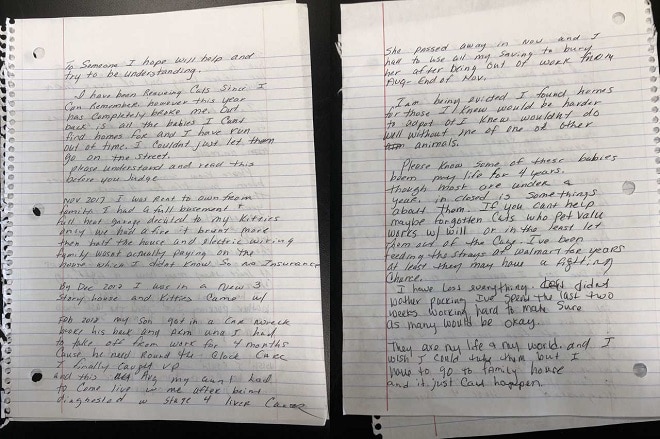 To Someone I hope will help and
try to be understanding.
I have been Rescueing Cats Since I
Can Remember however this year
has Completely broke me. Out
back is all the babies I Cant
find homes for and I have run
out of time. I Couldnt just let them
go on the street.
please understand and read this
before you Judge
Nov 2017 I was Rent to own from
family I had a full basement &
full heat garage decated to my Kitties
only we had a fire it brunt more
then half the house and electric wiring
family wasnt actually paying on the
home which I didnt Know So No Insurance
By Dec 2017 I was in a New 3
Story house and Kitties Came w/
Feb 2018 my Son got in a Car wreck
broke his back and Arm and I had
to take off from work for 4 months
Cause he need Round the Clock Care
I finally Caught up
and this Aug my aunt had
to Come live w me after being
diagnosted w Stage 4 liver Cancer
She passed away in Nov and I
had to use all my Saving to bury
her after being out of work from
Aug- End of Nov.
I am being evicted I found homes
for those I Knew would be harder
to adapt or I Knew wouldnt do
well without one of one or other
animals.
Please Know Some of these babies
been my life for 4 years.
though most are under a
year. in closed is Some things
about them. If you Cant help
maybe forgotten Cats who pet valu
works w/ will or in the least let
them out of the Cage I've been
feeding the strays at Walmart for years
at least they may have a fighting
Chance.
I have Loss everything. didnt
bother packing I've spend the last two
weeks working hard to make Sure
as many would be okay.
They are my life & my world. and I
wish I Could take them but I
have to go to family house
and it just Cant happen.